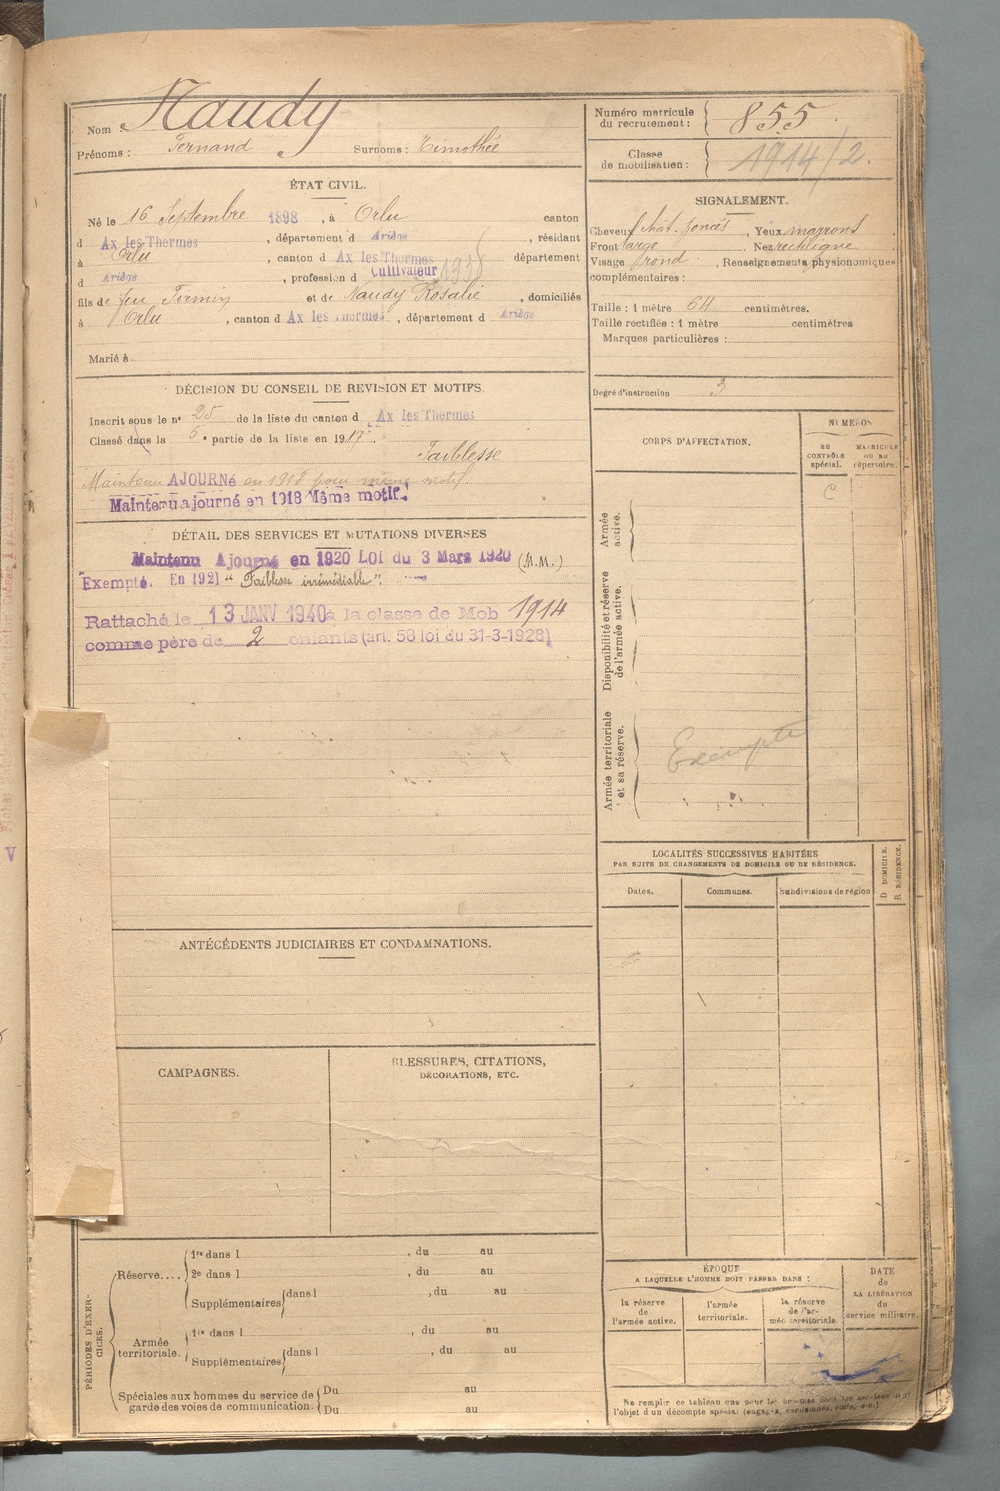 Nom : Naudy
Prénoms : Fernand Surnoms : Timothée
Numéro matricule du recrutement : 855
Classe de mobilisation : 1914/2.
ÉTAT CIVIL.
Né le 16 Septembre 1898, à Orlu canton
d Ax les Thermes, département d Ariège, résidant
à Orlu, canton d Ax les Thermes département
d Ariège, profession d Cultivateur 1938
fils de feu Firmin et de Naudy Rosalie, domiciliés
à Orlu, canton d Ax les Thermes, département d Ariège
Marié à
SIGNALEMENT.
Cheveux chât. foncés, Yeux marrons
Front large Nez rectiligne
Visage rond, Renseignements physionomiques
complémentaires :
Taille : 1 mètre 64 centimètres.
Taille rectifiée : 1 mètre centimètres
Marques particulières :
Degré d'instruction 3
DÉCISION DU CONSEIL DE REVISION ET MOTIFS.
Inscrit sous le n° 25 de la liste du canton d Ax les Thermes
Classé dans la 5e partie de la liste en 1917.
Faiblesse
Maintenu AJOURNé en 1918 pour même motif
Maintenu ajourné en 1918 Même motif.
DÉTAIL DES SERVICES ET MUTATIONS DIVERSES
Maintenu Ajourné en 1920 LOI du 3 Mars 1920 (M.M.)
Exempté. En 1921 "Faiblesse irrémédiable"
Rattaché le 13 JANV 1940 à la classe de Mob 1914
comme père de 2 enfants (art. 58 loi du 31-3-1928)
CORPS D'AFFECTATION.
NUMÉROS
au CONTRÔLE spécial.
MATRICULE OU AU répertoire.
C
Armée active.
Disponibilité et réserve de l'armée active.
Armée territoriale et sa réserve.
Exempté
LOCALITÉS SUCCESSIVES HABITÉES
PAR SUITE DE CHANGEMENTS DE DOMICILE OU DE RÉSIDENCE.
Dates. Communes. Subdivisions de région
D DOMICILE.
R RÉSIDENCE.
ANTÉCÉDENTS JUDICIAIRES ET CONDAMNATIONS.
CAMPAGNES.
BLESSURES, CITATIONS,
DÉCORATIONS, ETC.
PÉRIODES D'EXERCICES.
Réserve....
1re dans l , du au
2e dans l , du au
Supplémentaires dans l , du au
Armée territoriale.
1re dans l , du au
Supplémentaires dans l , du au
Spéciales aux hommes du service de
garde des voies de communication.
Du au
Du au
ÉPOQUE
A LAQUELLE L'HOMME DOIT PASSER DANS :
la réserve de l'armée active.
l'armée territoriale.
la réserve de l'armée territoriale.
DATE de LA LIBÉRATION du service militaire.
Ne remplir ce tableau que pour les hommes dont les services sont
l'objet d'un décompte spécial (engagés, condamnés, omis, etc.)
V